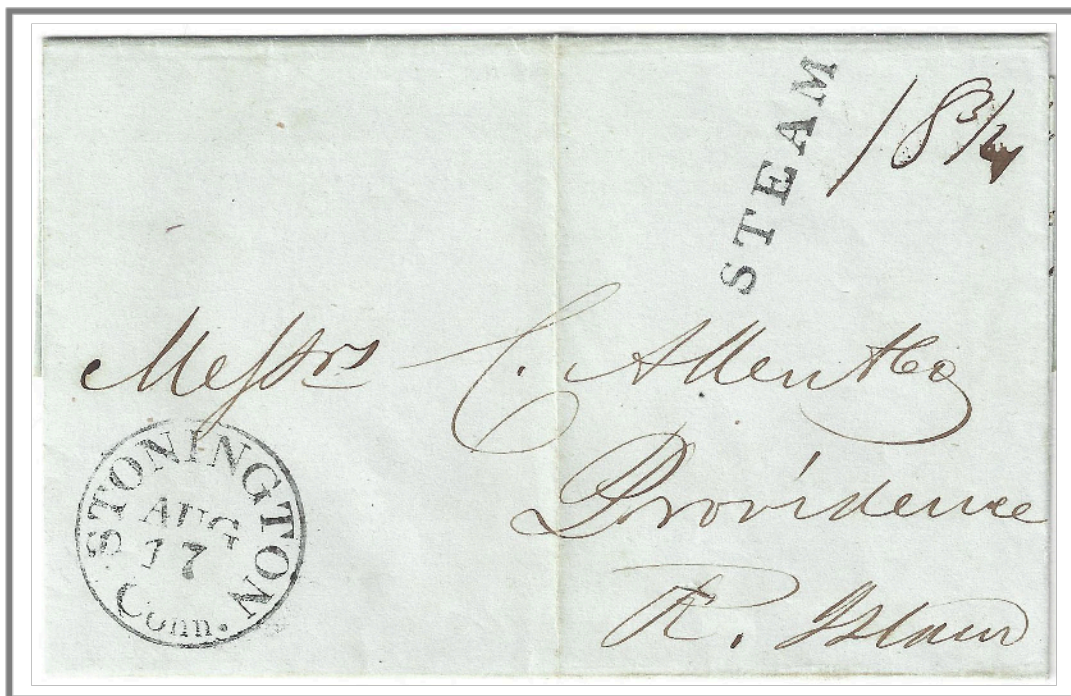 STEAM
18 3/4
Messrs C. Allen & Co
Providence
R. Island
STONINGTON
AUG
17
Conn.